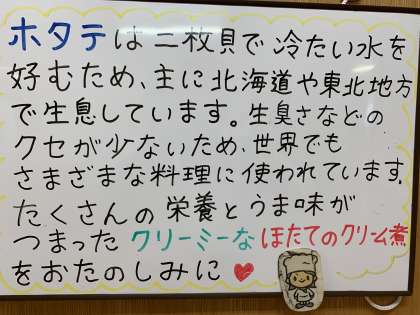 ホタテは二枚貝で冷たい水を
好むため、主に北海道や東北地方
で生息しています。生臭さなどの
クセが少ないため、世界でも
さまざまな料理に使われています。
たくさんの栄養とうま味が
つまったクリーミーなほたてのクリーム煮
をおたのしみに♥